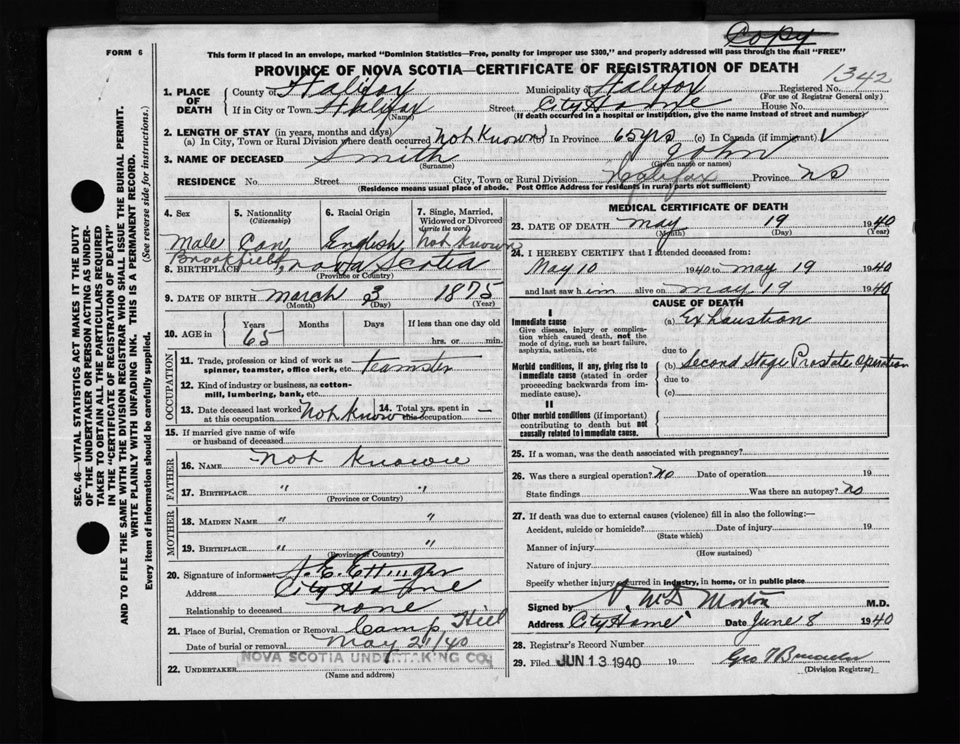 Copy
FORM 6
This form if placed in an envelope, marked "Dominion Statistics—Free, penalty for improper use $300," and properly addressed will pass through the mail "FREE"
PROVINCE OF NOVA SCOTIA—CERTIFICATE OF REGISTRATION OF DEATH
1342
1. PLACE OF DEATH
County of Halifax Municipality of Halifax Registered No.
(For use of Registrar General only)
If in City or Town Halifax Street City Home House No.
(Name) (If death occurred in a hospital or institution, give the name instead of street and number)
2. LENGTH OF STAY (in years, months and days)
(a) In City, Town or Rural Division where death occurred Not Known (b) In Province 65 yrs (c) In Canada (if immigrant) √
3. NAME OF DECEASED Smith John
(Surname) (Given name or names)
RESIDENCE No. Street City, Town or Rural Division Halifax Province NS
(Residence means usual place of abode. Post Office Address for residents in rural parts not sufficient)
4. Sex
Male
5. Nationality
(Citizenship)
Can
6. Racial Origin
English
7. Single, Married, Widowed or Divorced
(write the word)
Not Known
8. BIRTHPLACE Brookfield, Nova Scotia
(Province or Country)
9. DATE OF BIRTH March 3 1875
(Month) (Day) (Year)
10. AGE in
Years Months Days If less than one day old
65 hrs. or min.
OCCUPATION
11. Trade, profession or kind of work as spinner, teamster, office clerk, etc. teamster
12. Kind of industry or business, as cotton-mill, lumbering, bank, etc.
13. Date deceased last worked at this occupation Not Know
14. Total yrs. spent in this occupation —
15. If married give name of wife or husband of deceased
FATHER
16. NAME Not Known
17. BIRTHPLACE " "
(Province or Country)
MOTHER
18. MAIDEN NAME " "
19. BIRTHPLACE " "
(Province or Country)
20. Signature of informant H. E. Ettinger
Address City Home
Relationship to deceased none
21. Place of Burial, Cremation or Removal Camp Hill
Date of burial or removal May 21/40
NOVA SCOTIA UNDERTAKING CO.
22. UNDERTAKER
(Name and address)
MEDICAL CERTIFICATE OF DEATH
23. DATE OF DEATH May 19 1940
(Month) (Day) (Year)
24. I HEREBY CERTIFY that I attended deceased from:
May 10 1940 to May 19 1940
and last saw him alive on May 19 1940
CAUSE OF DEATH
I
Immediate cause
Give disease, injury or complication which caused death, not the mode of dying, such as heart failure, asphyxia, asthenia, etc
(a) Exhaustion
due to
Morbid conditions, if any, giving rise to immediate cause (stated in order proceeding backwards from immediate cause)
(b) Second Stage Prostate Operation
due to
(c)
II
Other morbid conditions (if important) contributing to death but not causally related to immediate cause.
25. If a woman, was the death associated with pregnancy?
26. Was there a surgical operation? No Date of operation 19
State findings Was there an autopsy? No
27. If death was due to external causes (violence) fill in also the following:—
Accident, suicide or homicide? Date of injury 19
(State which)
Manner of injury
(How sustained)
Nature of injury
Specify whether injury occurred in industry, in home, or in public place
Signed by McD Morton M.D.
Address City Home Date June 8 1940
28. Registrar's Record Number
29. Filed JUN 13 1940 19
(Division Registrar)
SEC. 46—VITAL STATISTICS ACT MAKES IT THE DUTY
OF THE UNDERTAKER OR PERSON ACTING AS UNDER-
TAKER TO OBTAIN ALL THE PARTICULARS REQUIRED
IN THE "CERTIFICATE OF REGISTRATION OF DEATH"
AND TO FILE THE SAME WITH THE DIVISION REGISTRAR WHO SHALL ISSUE THE BURIAL PERMIT.
WRITE PLAINLY WITH UNFADING INK. THIS IS A PERMANENT RECORD.
Every item of information should be carefully supplied. (See reverse side for instructions.)